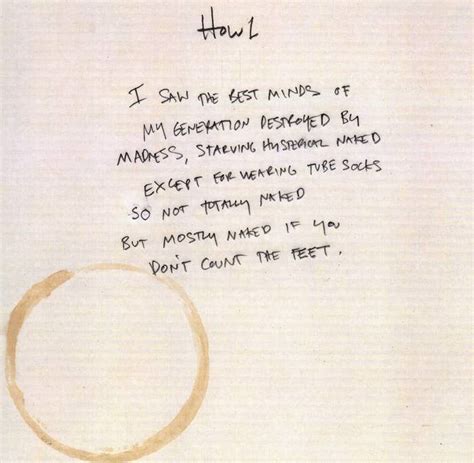 Howl
I SAW THE BEST MINDS OF
MY GENERATION DESTROYED BY
MADNESS, STARVING HYSTERICAL NAKED
EXCEPT FOR WEARING TUBE SOCKS
SO NOT TOTALLY NAKED
BUT MOSTLY NAKED IF YOU
DON'T COUNT THE FEET.